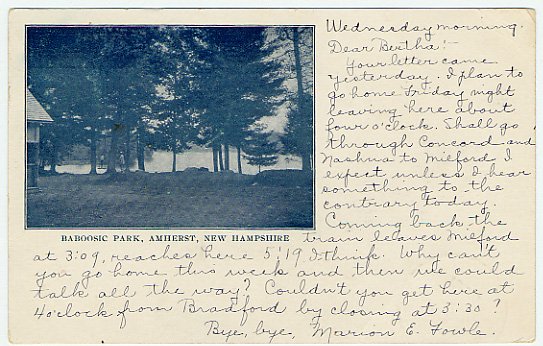 Wednesday morning.
Dear Bertha:-
Your letter came
yesterday. I plan to
go home Friday night
leaving here about
four o'clock. Shall go
through Concord and
Nashua to Milford I
expect unless I hear
something to the
contrary today.
Coming back the
train leaves Milford
at 3:09, reaches here 5:19 I think. Why can't
you go home this week and then we could
talk all the way? Couldn't you get here at
4 o'clock from Bradford by closing at 3:30?
Bye, bye, Marion E. Fowle.
BABOOSIC PARK, AMHERST, NEW HAMPSHIRE